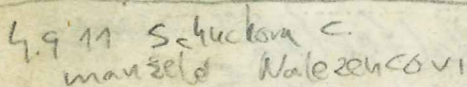 4.9 11 Schuckova C.
manželé Nalezencovi